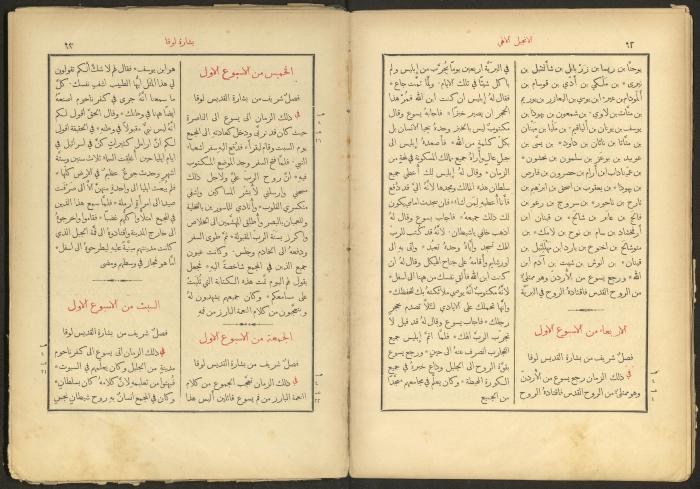 ٦٢
الانجيل الالهي
يوحنا بن ريسا بن زربابل بن شألتئيل بن
نيري * بن ملكي بن أدي بن قوسام بن
ألمودام بن عير * بن يوسي بن أليعازر بن يوريم
بن متثات بن لاوي * بن شمعون بن يهوذا بن
يوسف بن يونان بن ألياقيم * بن مليا بن مينان
بن متاثا بن ناثان بن داود * بن يسى بن
عوبيد بن بوعز بن سلمون بن نحشون *
بن عميناداب بن أرام بن حصرون بن فارص
بن يهوذا * بن يعقوب بن اسحق بن ابرهيم بن
تارح بن ناحور * بن سروج بن رعو بن
فالج بن عابر بن شالح * بن قينان بن
أرفخشاد بن سام بن نوح بن لامك * بن
متوشالح بن اخنوخ بن يارد بن مهللئيل بن
قينان * بن انوش بن شيت بن آدم ابن
الله * ورجع يسوع من الأردن وهو ممتلئ
من الروح القدس فاقتاده الروح في البرية
الاربعاء من الاسبوع الاول
فصل شريف من بشارة القديس لوقا
في ذلك الزمان رجع يسوع من الأردن
وهو ممتلئ من الروح القدس فاقتاده الروح
في البرية اربعين يوما يجرب من إبليس ولم
يأكل شيئا في تلك الايام * ولما تمت جاع *
فقال له إبليس ان كنت ابن الله فمر هذا
الحجر ان يصير خبزا * فاجابه يسوع وقال
مكتوب ليس بالخبز وحده يحيا الانسان بل
بكل كلمة من الله * فأصعده إبليس الى
جبل عال وأراه جميع ممالك المسكونة في لحظة من
الزمان * وقال له إبليس لك أعطي جميع
سلطان هذه الممالك ومجدها لانه الي قد دفع
وأنا أعطيه لمن اشاء * فان سجدت امامي يكون
لك ذلك جميعه * فأجاب يسوع وقال له
اذهب خلفي ياشيطان * لانه قد كتب للرب
الهك تسجد وأياه وحده تعبد * وأتى به الى
اورشليم وأقامه على جناح الهيكل وقال له ان
كنت ابن الله فألق نفسك من هنا الى اسفل *
لانه مكتوب أنه يوصي ملائكته بك لتحفظك *
وإنها تحملك على الايادي لئلا تصدم بحجر
رجلك * فاجاب يسوع وقال له قد قيل لا
تجرب الرب الهك * فلما اتم إبليس جميع
التجارب انصرف عنه الى حين * ورجع يسوع
بقوة الروح الى الجليل وذاع خبره في جميع
الكورة المحيطة * وكان يعلم في مجامعهم ممجدا
من الجميع
٦٣
بشارة لوقا
الخميس من الاسبوع الاول
فصل شريف من بشارة القديس لوقا
في ذلك الزمان اتى يسوع الى الناصرة
حيث كان قد تربى ودخل كعادته الى المجمع
يوم السبت وقام ليقرأ * فدفع اليه سفر اشعياء
النبي * فلما فتح السفر وجد الموضع المكتوب
فيه * ان روح الرب علي ولاجل ذلك
مسحني وأرسلني لأبشر المساكين واشفي
منكسري القلوب * وأنادي للمأسورين بالتخلية
وللعميان بالبصر وأطلق المهشمين الى الخلاص
وأكرز بسنة الرب المقبولة * ثم طوى السفر
ودفعه الى الخادم وجلس * وكانت عيون
جميع الذين في المجمع شاخصة اليه * فجعل
يقول لهم اليوم تمت هذه الكتابة التي تليت
على مسامعكم * وكان جميعهم يشهدون له
ويتعجبون من كلام النعمة البارز من فيه
الجمعة من الاسبوع الاول
فصل شريف من بشارة القديس لوقا
في ذلك الزمان تعجب الجموع من كلام
النعمة البارز من فم يسوع قائلين أليس هذا
هو ابن يوسف * فقال لهم لا شك أنكم تقولون
لي هذا المثل ايها الطبيب اشف نفسك * كل
ما سمعنا أنه جرى في كفرناحوم اصنعه
ايضا ههنا في وطنك * وقال الحق أقول لكم
أنه ليس نبي مقبولا في وطنه * في الحقيقة اقول
لكم ان أرامل كثيرات كن في اسرائيل في
ايام ايليا حين أغلقت السماء ثلاث سنين وستة
اشهر وحدث جوع عظيم في الارض كلها *
فلم يبعث ايليا الى واحدة منهن الا الى صرفت
صيدا الى امرأة ارملة * فلما سمع هذا الذين
في المجمع امتلأوا كلهم غضبا * فقاموا واخرجوه
الى خارج المدينة واقتادوه الى قمة الجبل الذي
كانت مدينتهم مبنية عليه ليطرحوه الى اسفل *
اما هو فجاز في وسطهم ومضى
السبت من الاسبوع الاول
فصل شريف من بشارة القديس لوقا
في ذلك الزمان اتى يسوع الى كفرناحوم
مدينة من الجليل وكان يعلمهم في السبوت *
فبهتوا من تعليمه لان كلامه كان بسلطان *
وكان في المجمع انسان به روح شيطان نجس